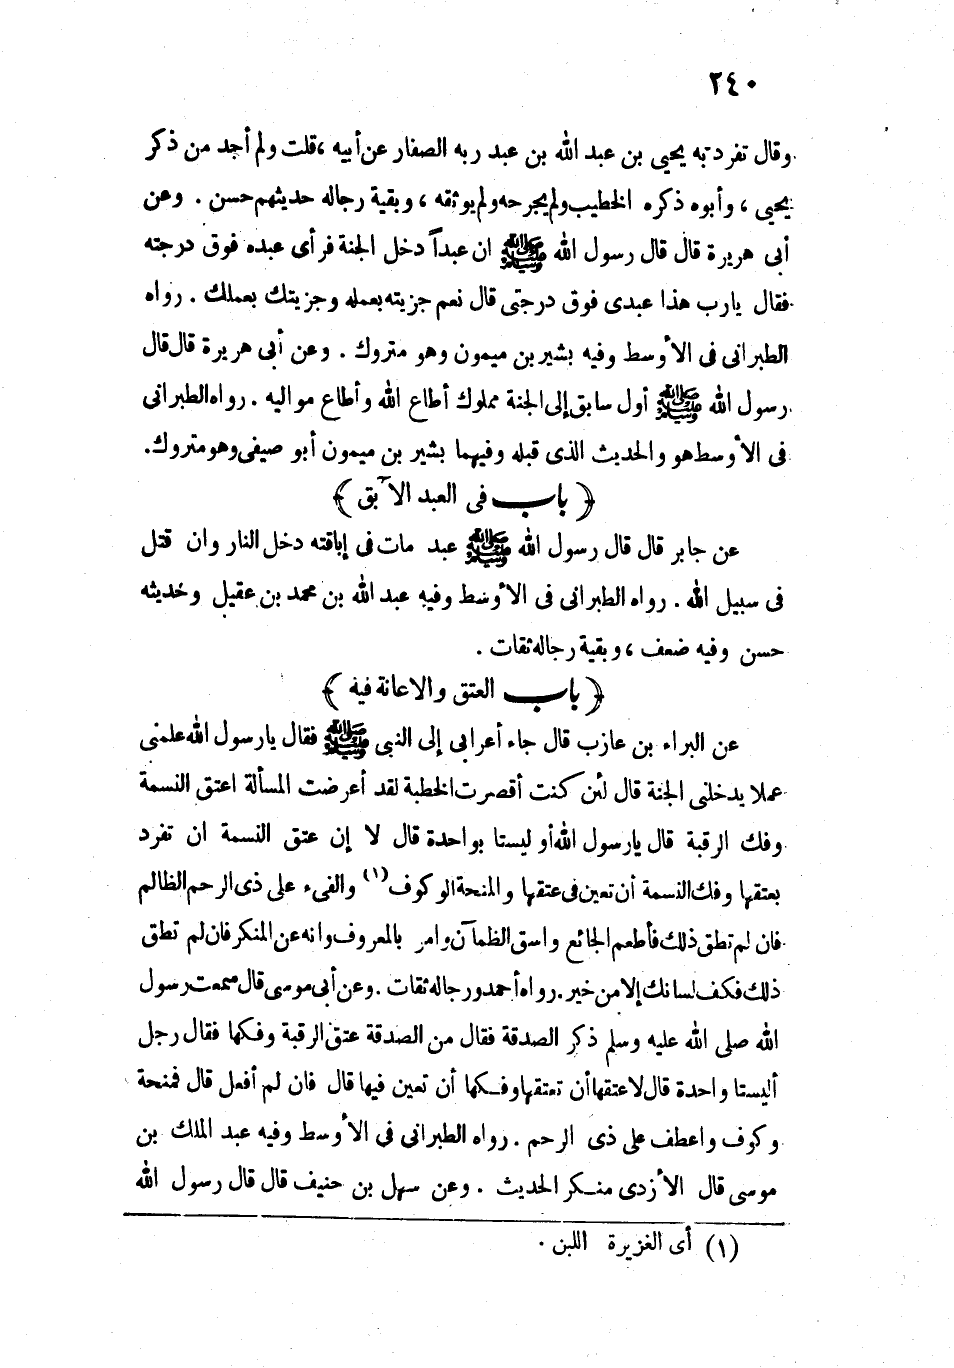 ٢٤٠
وقال تفرد به يحيى بن عبد الله بن عبد ربه الصفار عن أبيه ، قلت ولم أجد من ذكر
يحيى ، وأبوه ذكره الخطيب ولم يجرحه ولم يوثقه ، وبقية رجاله حديثهم حسن . وعن
أبى هريرة قال قال رسول الله ﷺ ان عبداً دخل الجنة فرأى عبده فوق درجته
فقال يارب هذا عبدى فوق درجتى قال نعم جزيته بعمله وجزيتك بعملك . رواه
الطبرانى فى الأوسط وفيه بشير بن ميمون وهو متروك . وعن أبى هريرة قال قال
رسول الله ﷺ أول سابق إلى الجنة مملوك أطاع الله وأطاع مواليه . رواه الطبرانى
فى الأوسط هو والحديث الذى قبله وفيهما بشير بن ميمون أبو صيفى وهو متروك .
﴿ باب فى العبد الآبق ﴾
عن جابر قال قال رسول الله ﷺ عبد مات فى إباقته دخل النار وان قتل
فى سبيل الله . رواه الطبرانى فى الأوسط وفيه عبد الله بن محمد بن عقيل وحديثه
حسن وفيه ضعف ، وبقية رجاله ثقات .
﴿ باب العتق والاعانة فيه ﴾
عن البراء بن عازب قال جاء أعرابى إلى النبى ﷺ فقال يارسول الله علمنى
عملا يدخلنى الجنة قال لئن كنت أقصرت الخطبة لقد أعرضت المسألة اعتق النسمة
وفك الرقبة قال يارسول الله أو ليستا بواحدة قال لا إن عتق النسمة ان تفرد
بعتقها وفك النسمة أن تعين فى عتقها والمنحة الوكوف (١) والفىء على ذى الرحم الظالم
فان لم تطق ذلك فأطعم الجائع واسق الظمآن وامر بالمعروف وانه عن المنكر فان لم تطق
ذلك فكف لسانك إلا من خير . رواه أحمد ورجاله ثقات . وعن أبى موسى قال سمعت رسول
الله صلى الله عليه وسلم ذكر الصدقة فقال من الصدقة عتق الرقبة وفكها فقال رجل
أليستا واحدة قال لا عتقها أن تعتقها وفكها أن تعين فيها قال فان لم أفعل قال فمنحة
وكوف واعطف على ذى الرحم . رواه الطبرانى فى الأوسط وفيه عبد الملك بن
موسى قال الأزدى منكر الحديث . وعن سهل بن حنيف قال قال رسول الله
(١) أى الغزيرة اللبن .